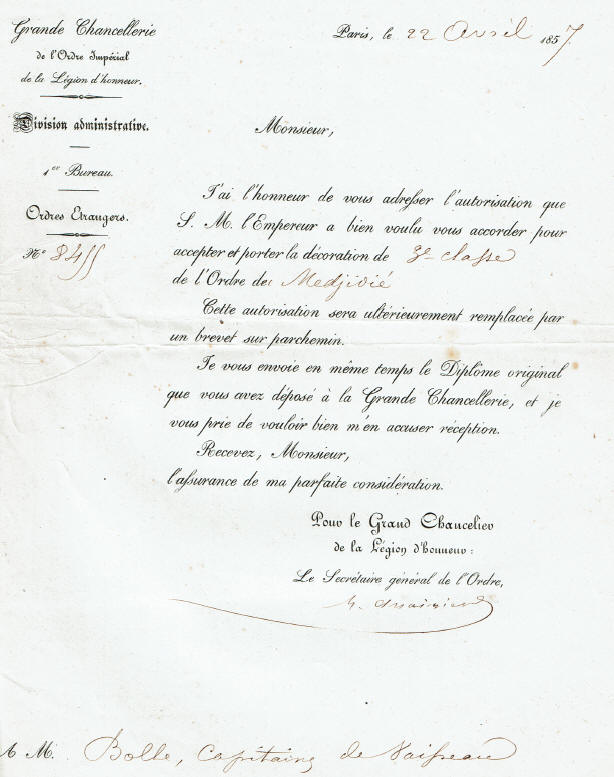 Grande Chancellerie
de l'Ordre Impérial
de la Légion d'honneur.
Division administrative.
1er Bureau.
Ordres Etrangers.
No 8455
Paris, le 22 Avril 1857.
Monsieur,
J'ai l'honneur de vous adresser l'autorisation que
S. M. l'Empereur a bien voulu vous accorder pour
accepter et porter la décoration de 3e classe
de l'Ordre de Medjidié
Cette autorisation sera ultérieurement remplacée par
un brevet sur parchemin.
Je vous envoie en même temps le Diplôme original
que vous avez déposé à la Grande Chancellerie, et je
vous prie de vouloir bien m'en accuser réception.
Recevez, Monsieur,
l'assurance de ma parfaite considération.
Pour le Grand Chancelier
de la Légion d'honneur:
Le Secrétaire général de l'Ordre,
A M. Bolle, Capitaine de Vaisseau